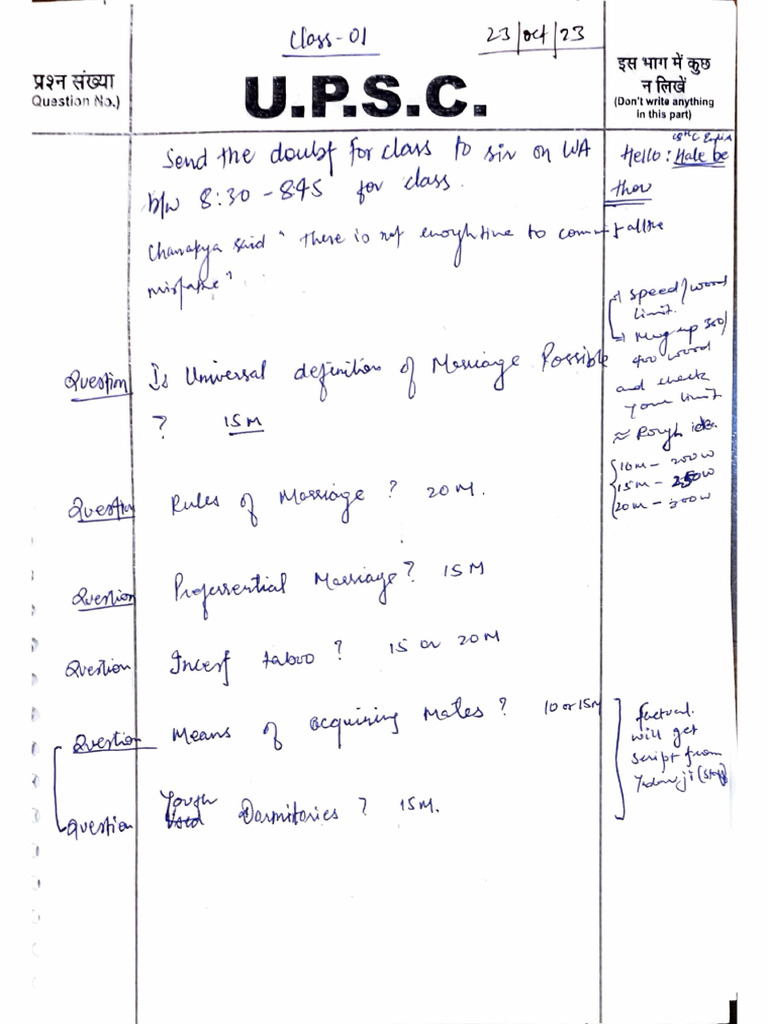 Class-01
23/oct/23
प्रश्न संख्या
Question No.)
U.P.S.C.
इस भाग में कुछ
न लिखें
(Don't write anything
in this part)
Send the doubt for class to sir on WA
b/w 8:30 - 845 for class.
Hello: Hale be
thou
Chanakya said " There is not enough time to commit all the
mistake"
→ speed/word
limit.
→ Mug up 300/
400 word
and check
your limit
≈ Rough idea
10M - 200W
15M - 250W
20M - 300W
Question Is Universal definition of Marriage Possible
? 15M
Question Rules of Marriage ? 20M.
Question Preferential Marriage? 15M
Question Incest taboo ? 15 or 20M
Question Means of acquiring Mates ? 10 or 15M
Question Youth Dormitories ? 15M.
factual.
will get
script from
(staff)